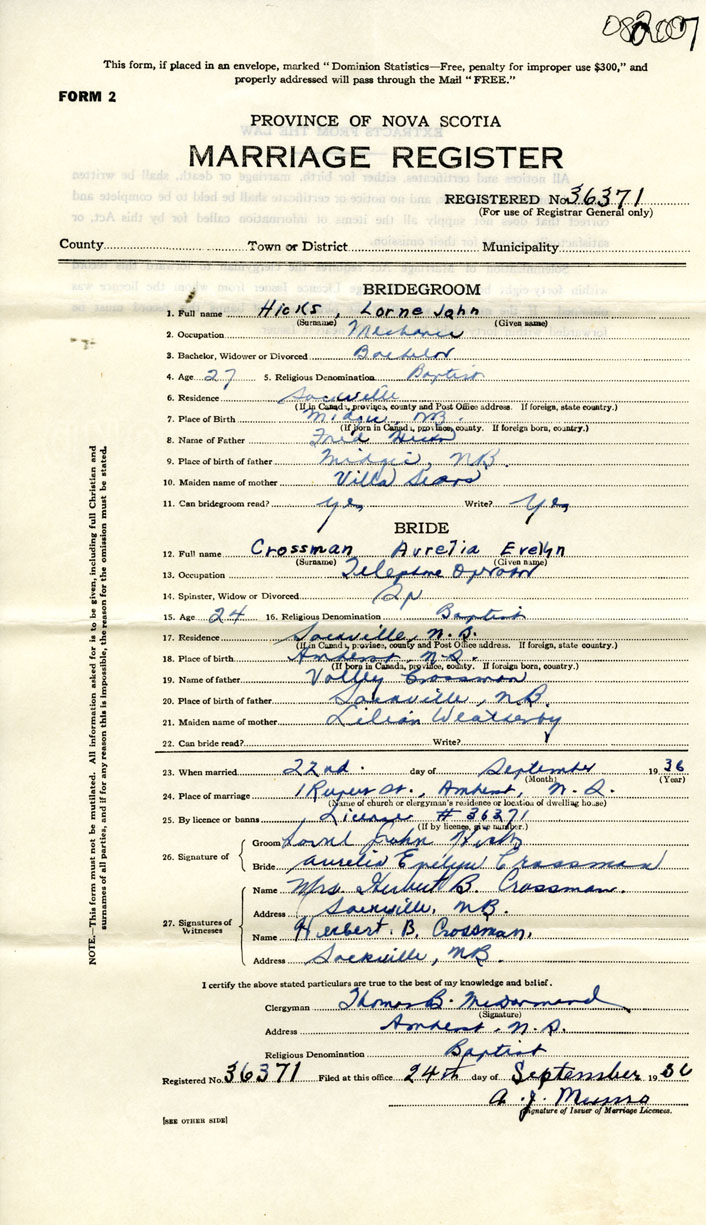 082007
This form, if placed in an envelope, marked "Dominion Statistics—Free, penalty for improper use $300," and
properly addressed will pass through the Mail "FREE."
FORM 2
PROVINCE OF NOVA SCOTIA
MARRIAGE REGISTER
REGISTERED No. 36371
(For use of Registrar General only)
County Town or District Municipality
BRIDEGROOM
1. Full name Hicks, Lorne John
(Surname) (Given name)
2. Occupation Mechanic
3. Bachelor, Widower or Divorced Bachelor
4. Age 27 5. Religious Denomination Baptist
6. Residence Sackville
(If in Canada, province, county and Post Office address. If foreign, state country.)
7. Place of Birth Midgic, NB.
(If born in Canada, province, county. If foreign born, country.)
8. Name of Father Fred Hicks
9. Place of birth of father Midgic, NB.
10. Maiden name of mother Villa Sears
11. Can bridegroom read? yes Write? Yes
BRIDE
12. Full name Crossman Aurelia Evelyn
(Surname) (Given name)
13. Occupation Telephone Operator
14. Spinster, Widow or Divorced Sp
15. Age 24 16. Religious Denomination Baptist
17. Residence Sackville, N.S.
(If in Canada, province, county and Post Office address. If foreign, state country.)
18. Place of birth Amherst, N.S.
(If born in Canada, province, county. If foreign born, country.)
19. Name of father Volley Crossman
20. Place of birth of father Sackville, NB.
21. Maiden name of mother Lilian Weatherby
22. Can bride read? Write?
23. When married 22nd. day of September 1936
(Month) (Year)
24. Place of marriage 1 Rupert St., Amherst, N.S.
(Name of church or clergyman's residence or location of dwelling house)
25. By licence or banns License # 36371
(If by licence, give number.)
26. Signature of
Groom Lorne John Hicks
Bride Aurelia Evelyn Crossman
27. Signatures of Witnesses
Name Mrs. Herbert B. Crossman.
Address Sackville, NB.
Name Herbert. B. Crossman.
Address Sackville, NB.
I certify the above stated particulars are true to the best of my knowledge and belief.
Clergyman Thomas B. McDormand
(Signature)
Address Amherst, N.S.
Religious Denomination Baptist
Registered No. 36371 Filed at this office 24th day of September 1936
A. J. Munro
Signature of Issuer of Marriage Licences.
[SEE OTHER SIDE]
NOTE.—This form must not be mutilated. All information asked for is to be given, including full Christian and
surnames of all parties, and if for any reason this is impossible, the reason for the omission must be stated.